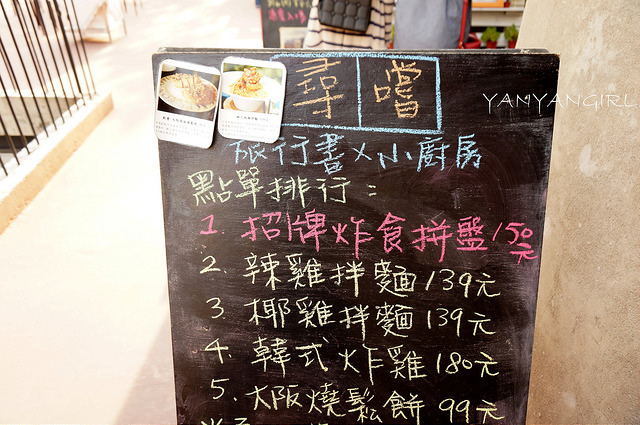 尋嚐
YANYANGIRL
旅行書×小廚房
點單排行：
1. 招牌炸食拼盤150元
2. 辣雞拌麵139元
3. 椰雞拌麵139元
4. 韓式炸雞180元
5. 大阪燒鬆餅99元